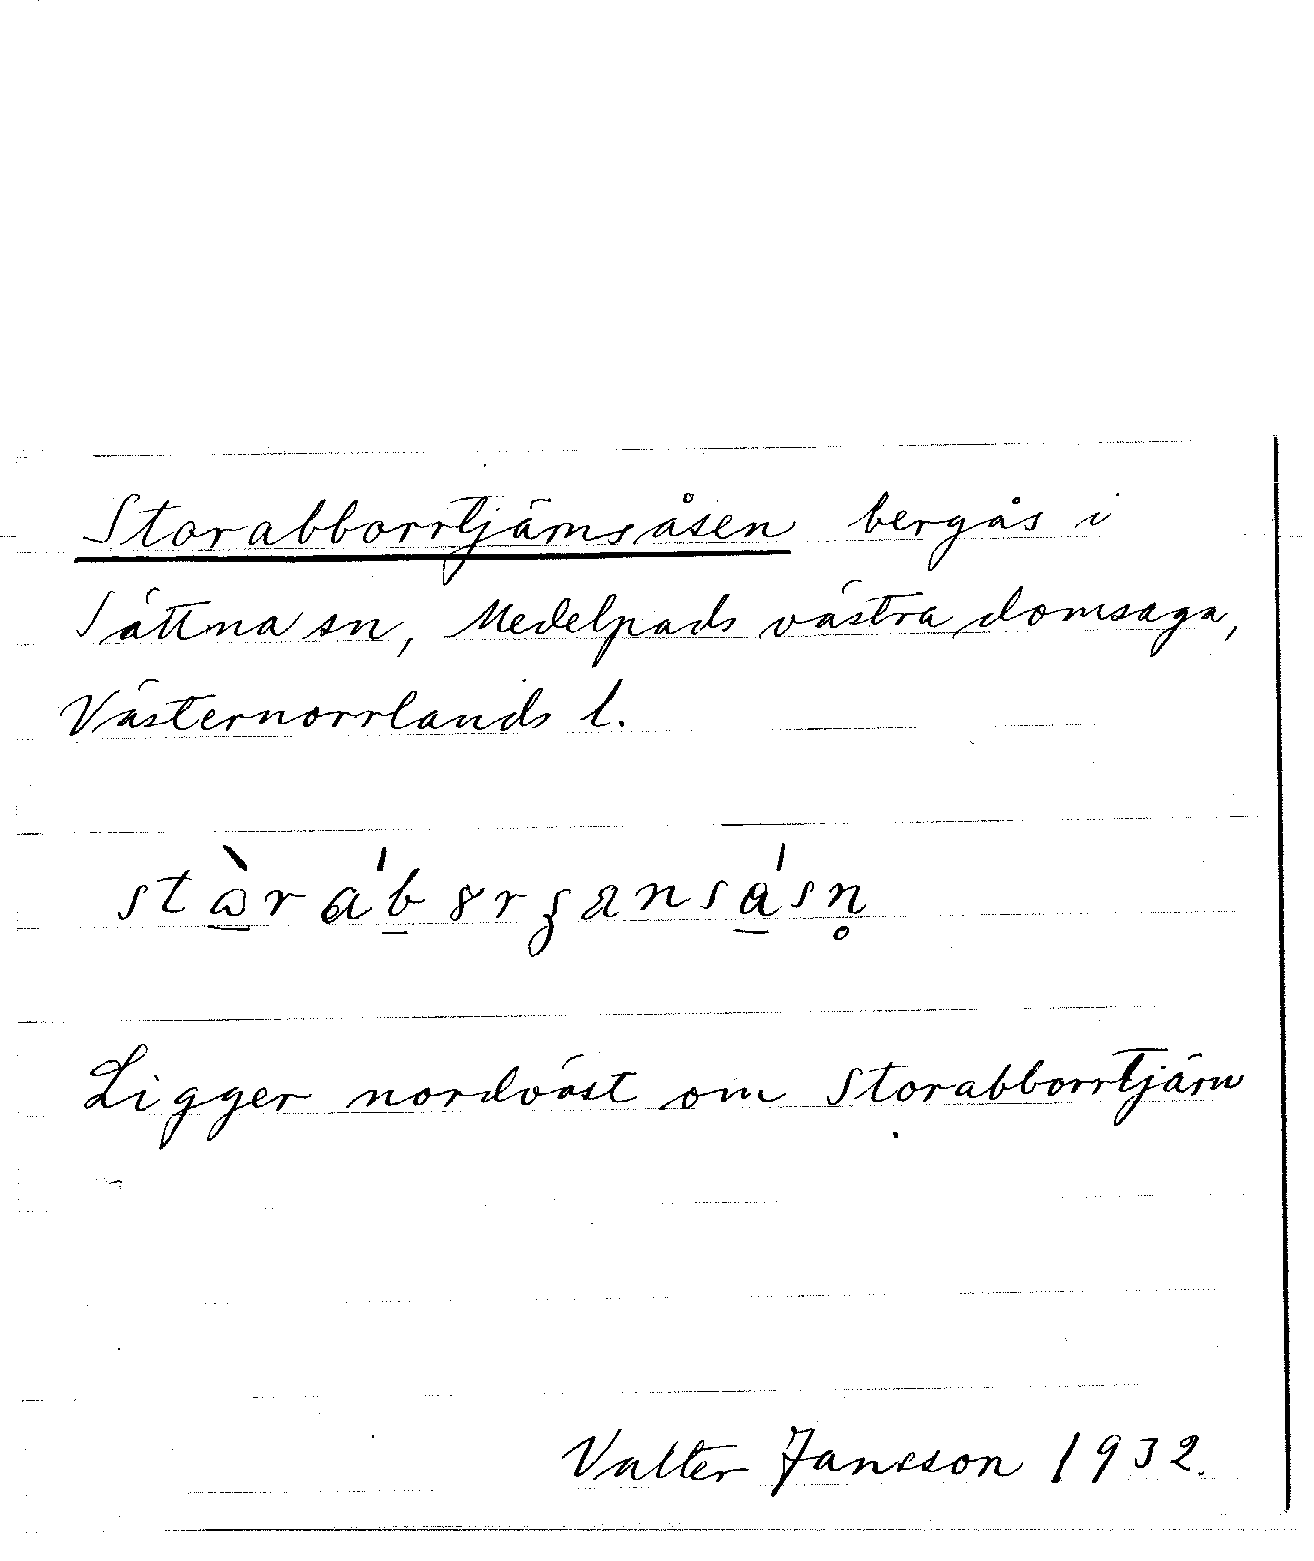 Storabborrtjärnsåsen bergås i
Sättna sn, Medelpads västra domsaga,
Västernorrlands l.
Ligger nordväst om Storabborrtjärn
Valter Jansson 1932.